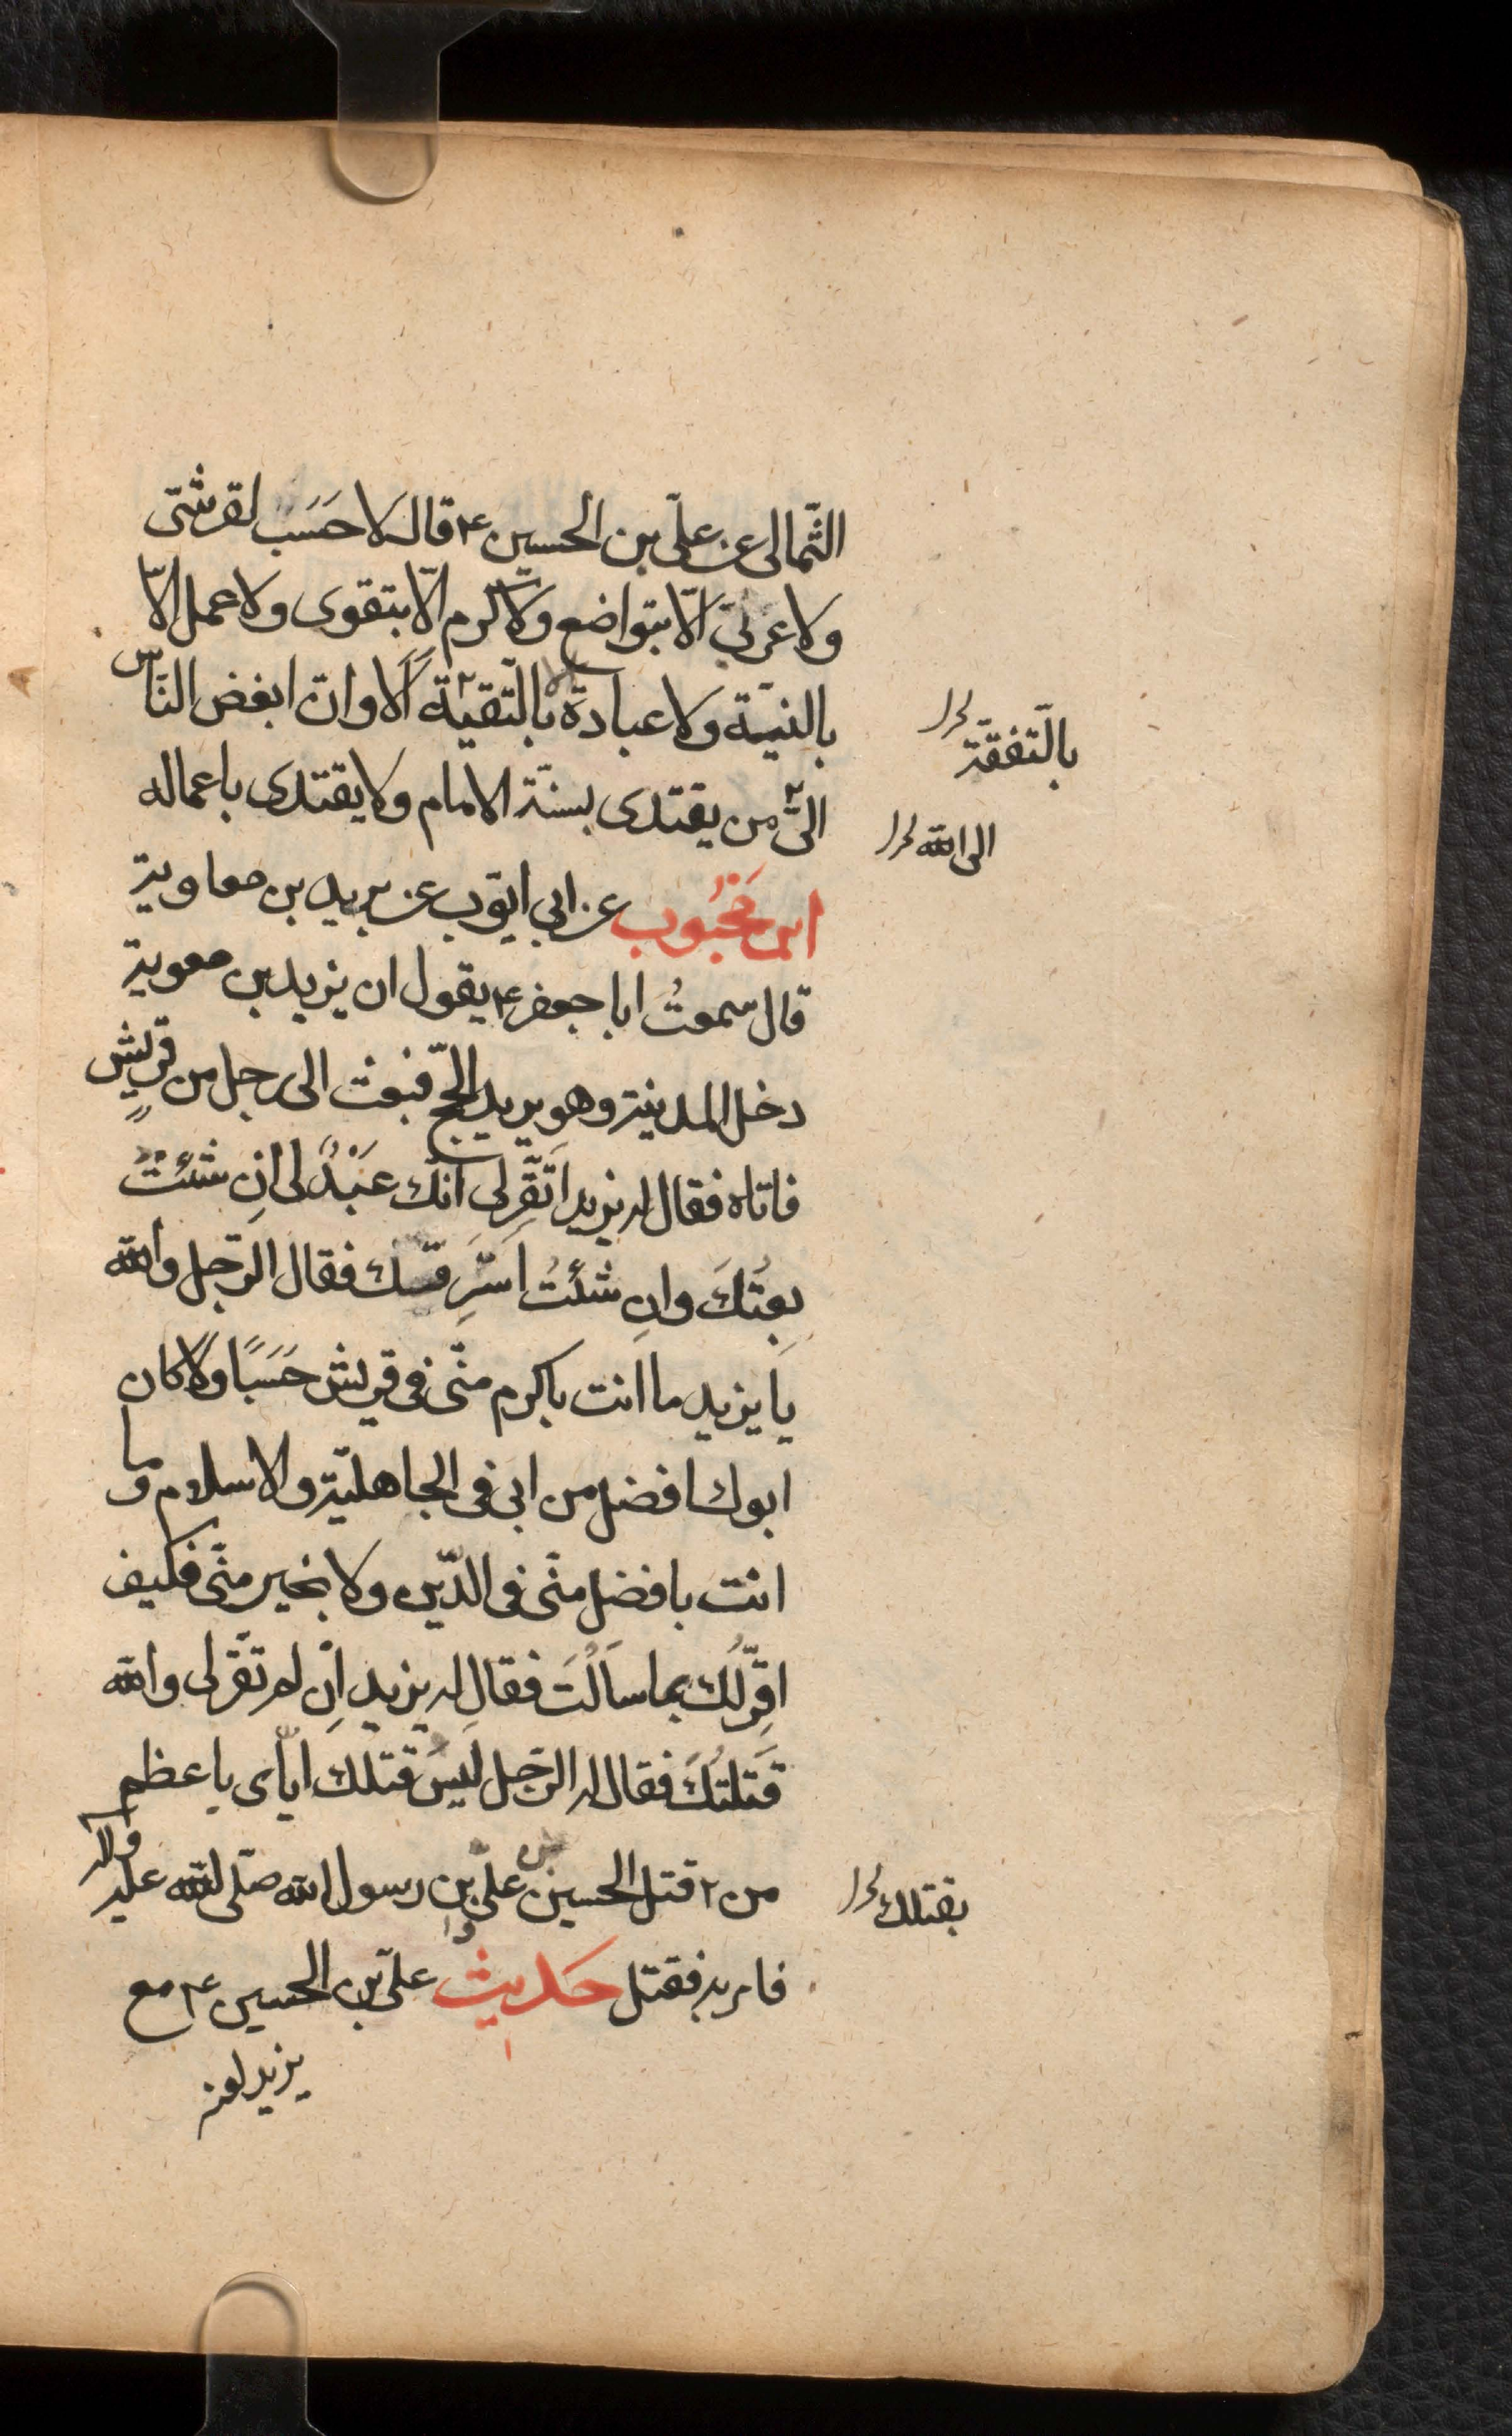 الثّمالى عن علىّ بن الحسين ع قال لا حَسَب لقرشىّ
ولا عربىّ الّا بتواضع ولا كرم الّا بتقوى ولا عمل الّا
بالنيّة ولا عبادة بالتّقيّة الا وان ابغض النّاس
بالتّفقّه
الىّ من يقتدى بسنّة الامام ولا يقتدى باعماله
الى الله
ابن محبُوب عن ابي ايّوب عن بريد بن معاوية
قال سمعتُ ابا جعفر ع يقول ان يزيد بن معوية
دخل المدينة وهو يريد الحجّ فبعث الى رجل من قريش
فاتاه فقال له يزيد اَتَقِرّ لى انّك عَبْدٌ لى اِن شئتُ
بِعتُكَ واِن شئتُ استَرِققتك فقال الرّجل والله
يا يزيد ما انت باكرم منّى فى قريش حَسَبًا ولا كان
ابوك افضل من ابى فى الجاهليّة والاسلام وما
انت بافضل منّى فى الدّين ولا بخير منّى فكيف
اقِرّ لك بما سَالتَ فقال له يزيد اِن لم تقرّ لى والله
قتَلتُكَ فقال له الرّجل ليسَ قتلك ايّاى باعظم
من قتل الحسين بن علىّ بن رسول الله صلّى الله عليه واله
بقتلك
فامر به فقتل حديث علىّ بن الحسين ع مع
يزيد لعنه